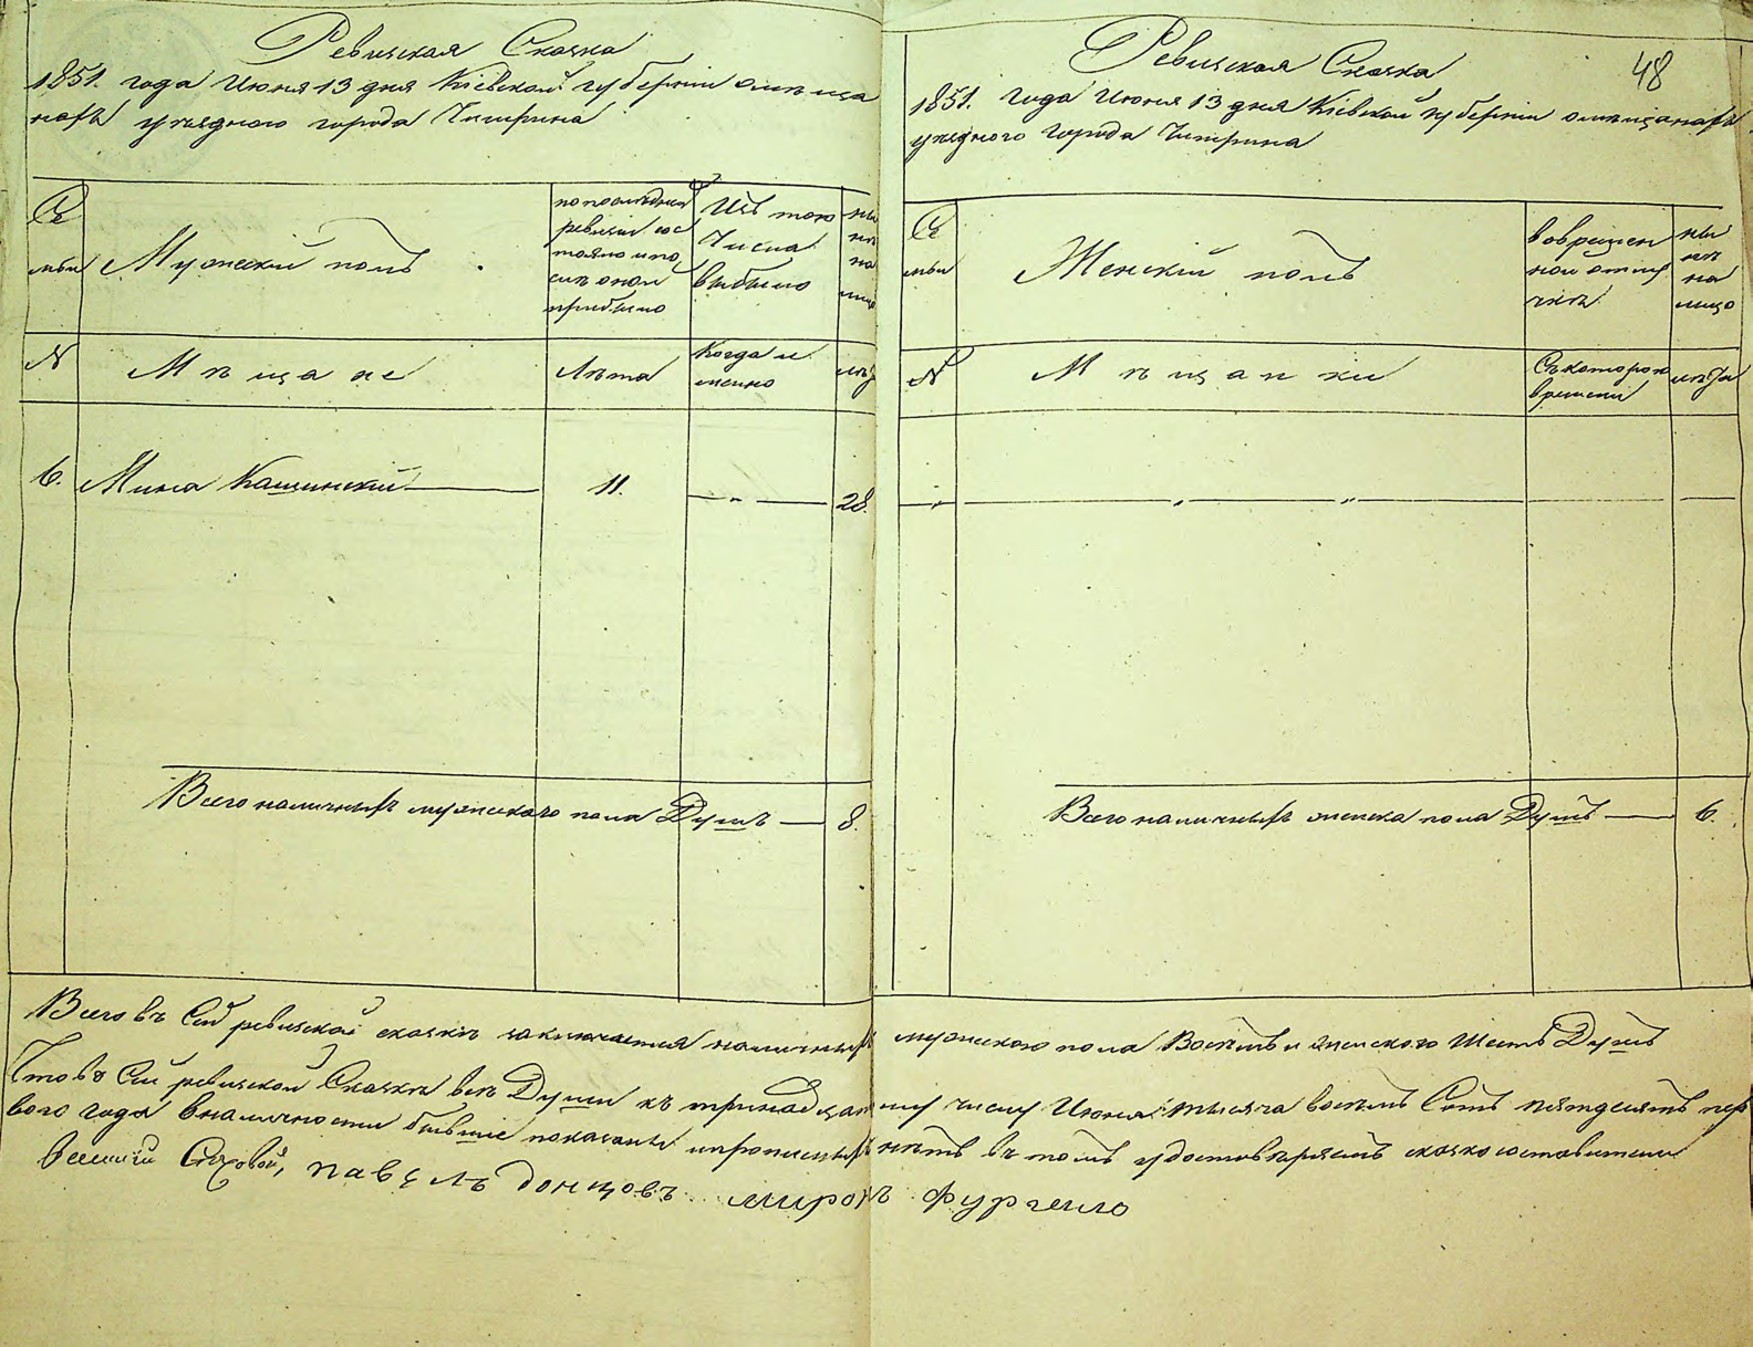 Ревизская Сказка
1851. года Июня 13 дня Кіевской губерніи о мѣща
нахъ уѣзднаго города Чигирина
Се
мьи
Мужескій полъ
по послѣдней
ревизіи сос
тояло и по
слѣ оной
прибыло
Изъ того
Числа
выбыло
ны
нѣ
на
лицо
N
Мѣщане
Лѣта
Когда и
менно
лѣт
6. Мина Кашинскій 11. — „ — 28.
Всего наличныхъ мужескаго пола Душъ — 8.
48
Ревизская Сказка
1851. года Июня 13 дня Кіевской губерніи о мѣщанахъ
уѣзднаго города Чигирина
Се
мьи
Женскій полъ
во времен
ной отлу
чкѣ
ны
нѣ
на
лицо
N
Мѣщанки
Съ котораго
времени
лѣта
Всего наличныхъ женска пола Душъ — 6.
Всего въ Сей ревизской сказкѣ заключается наличныхъ мужескаго пола Восѣмь и женскаго Шесть Душъ
Что въ Сей ревизской Сказкѣ всѣ Души къ тринадцатому числу Июня тысяча восѣмь Сотъ пятдесятъ пер
вого года в наличности бывшіе показаны и прописныхъ нѣтъ въ томъ удостовѣряемъ сказкосоставители
павелъ донцовъ миронъ фургело